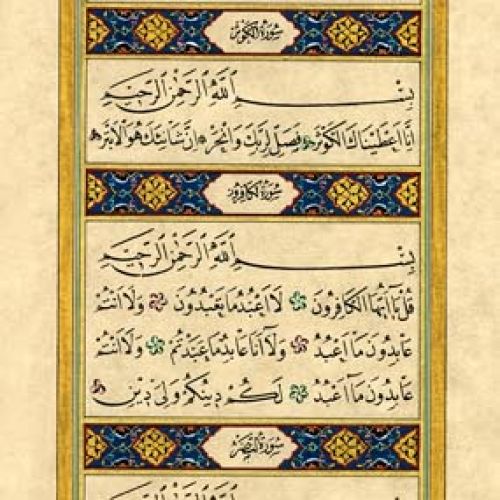 سُورَةُ الْكَوْثَرِ
بِسْمِ اللّٰهِ الرَّحْمٰنِ الرَّحِيمِ
اِنَّا اَعْطَيْنَاكَ الْكَوْثَرَ فَصَلِّ لِرَبِّكَ وَانْحَرْ اِنَّ شَانِئَكَ هُوَ الْاَبْتَرُ
سُورَةُ الْكَافِرُونَ
بِسْمِ اللّٰهِ الرَّحْمٰنِ الرَّحِيمِ
قُلْ يَا اَيُّهَا الْكَافِرُونَ لَا اَعْبُدُ مَا تَعْبُدُونَ وَلَا اَنْتُمْ
عَابِدُونَ مَا اَعْبُدُ وَلَا اَنَا عَابِدٌ مَا عَبَدْتُمْ وَلَا اَنْتُمْ
عَابِدُونَ مَا اَعْبُدُ لَكُمْ دِينُكُمْ وَلِيَ دِينِ
سُورَةُ النَّصْرِ
بِسْمِ اللّٰهِ الرَّحْمٰنِ الرَّحِيمِ